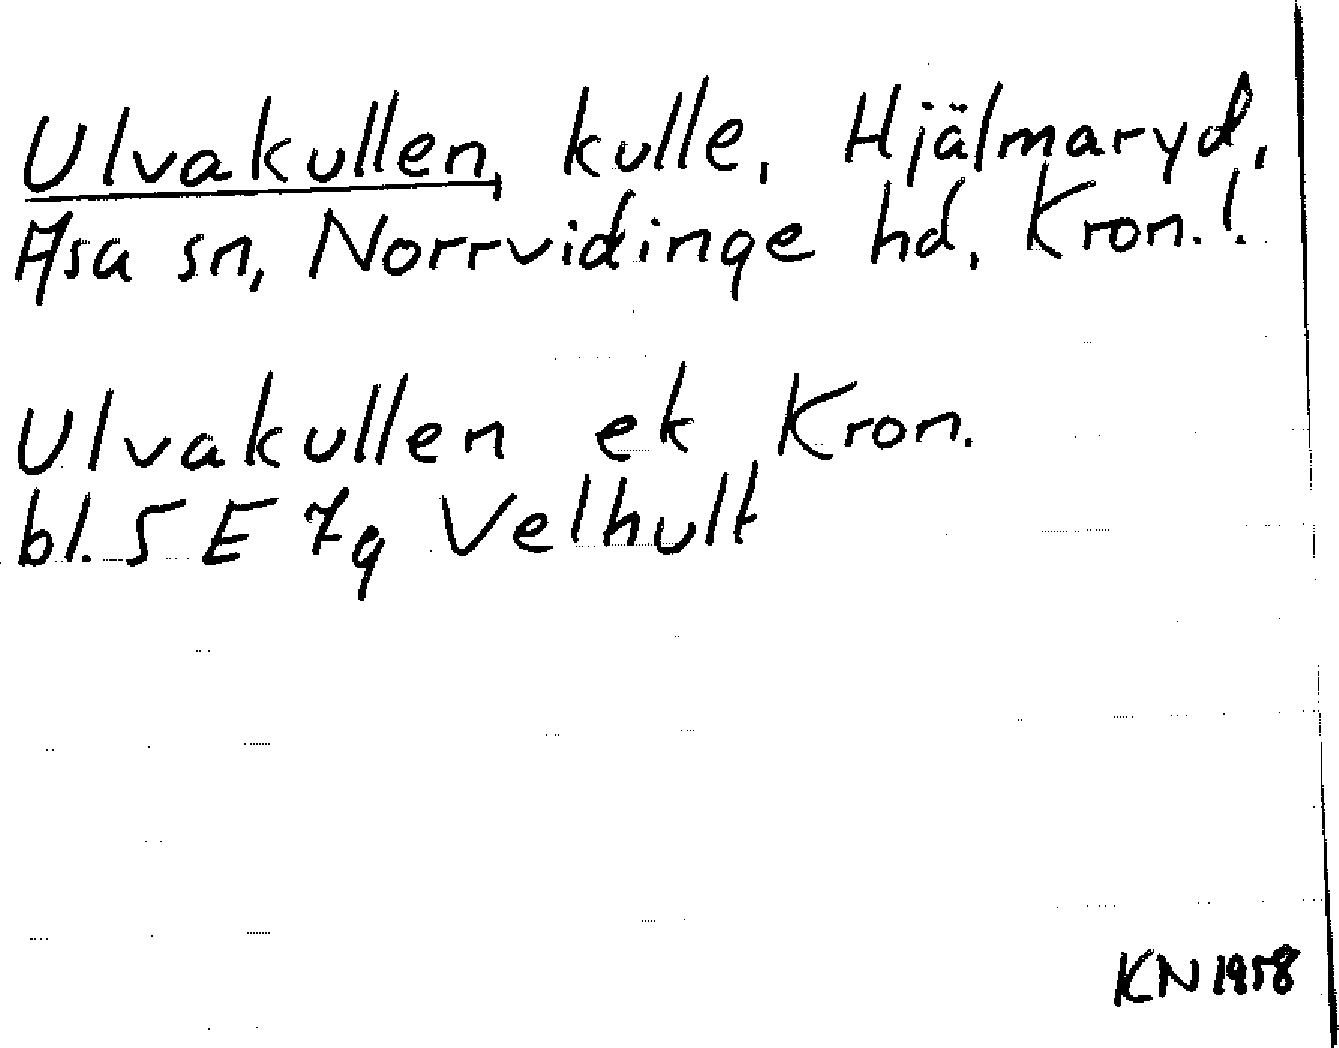 Ulvakullen, kulle, Hjälmaryd,
Asa sn, Norrvidinge hd, Kron.!
Ulvakullen ek Kron.
bl. 5 E 7g Velhult
KN 1958